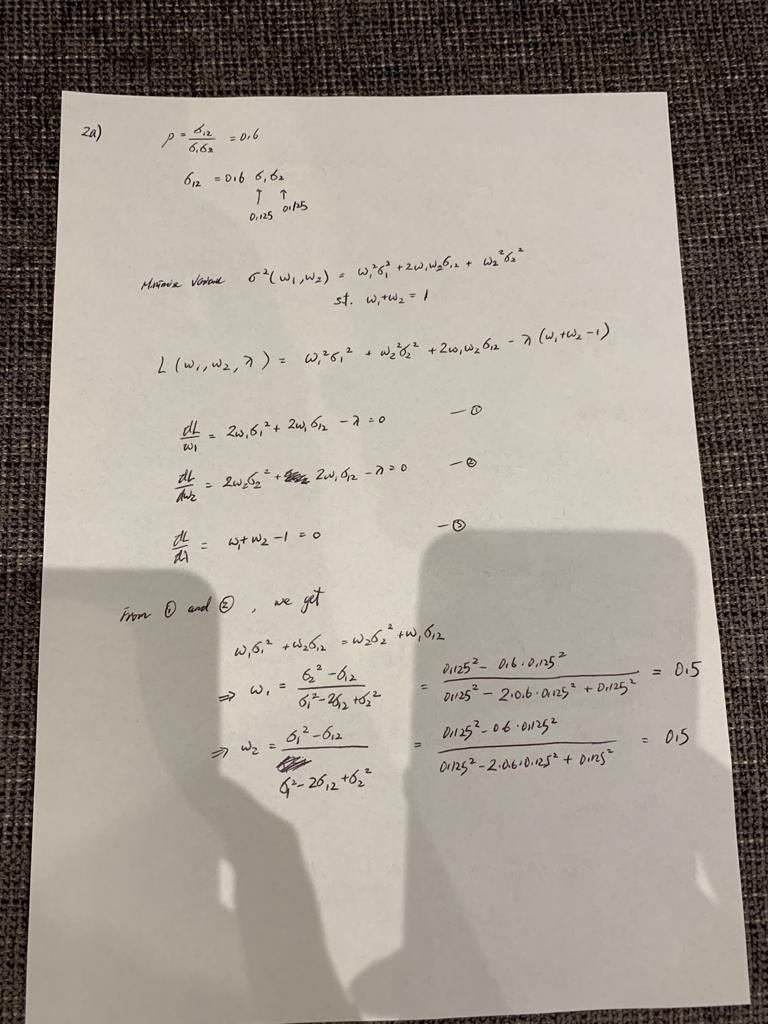 2a) ρ = σ12 / σ1σ2 = 0.6
σ12 = 0.6 σ1 σ2
↑ ↑
0.125 0.125
Minimise Variance σ²(w1, w2) = w1²σ1² + 2w1w2σ12 + w2²σ2²
st. w1+w2 = 1
L(w1, w2, λ) = w1²σ1² + w2²σ2² + 2w1w2σ12 - λ(w1+w2-1)
dL/w1 = 2w1σ1² + 2w1σ12 - λ = 0 — ①
dL/dw2 = 2w2σ2² + 2w1σ12 - λ = 0 — ②
dL/dλ = w1+w2-1 = 0 — ③
From ① and ②, we get
w1σ1² + w2σ12 = w2σ2² + w1σ12
⇒ w1 = (σ2² - σ12) / (σ1² - 2σ12 + σ2²) = (0.125² - 0.6·0.125²) / (0.125² - 2·0.6·0.125² + 0.125²) = 0.5
⇒ w2 = (σ1² - σ12) / (σ1² - 2σ12 + σ2²) = (0.125² - 0.6·0.125²) / (0.125² - 2·0.6·0.125² + 0.125²) = 0.5